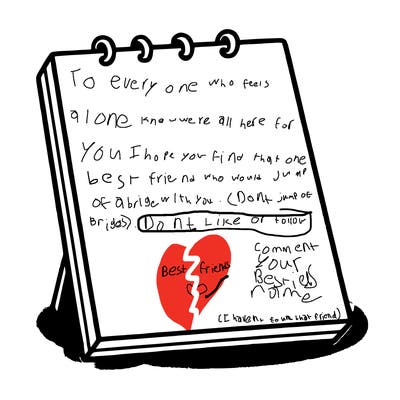 To every one who feels
alone know we're all here for
you I hope you find that one
best friend who would jump
of a brige with you. (Dont jump of
Brigas). Dont Like or follow
Best friends
comment
your
Besties
name
(I havent found that friend)